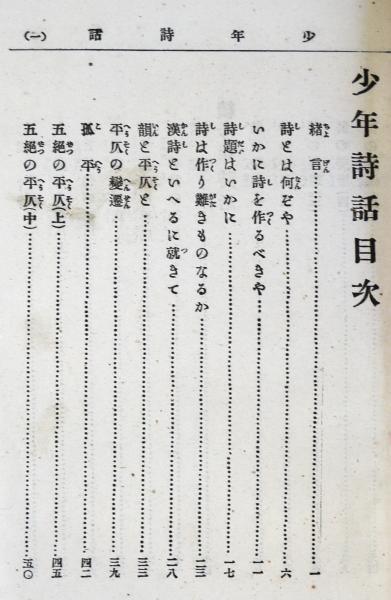 少年詩話 (一)
少年詩話目次
緒言 一
詩とは何ぞや 六
いかに詩を作るべきや 一一
詩題はいかに 一七
詩は作り難きものなるか 二三
漢詩といへるに就きて 二八
韻と平仄と 三三
平仄の變遷 三九
孤平 四二
五絕の平仄(上) 四五
五絕の平仄(中) 五〇